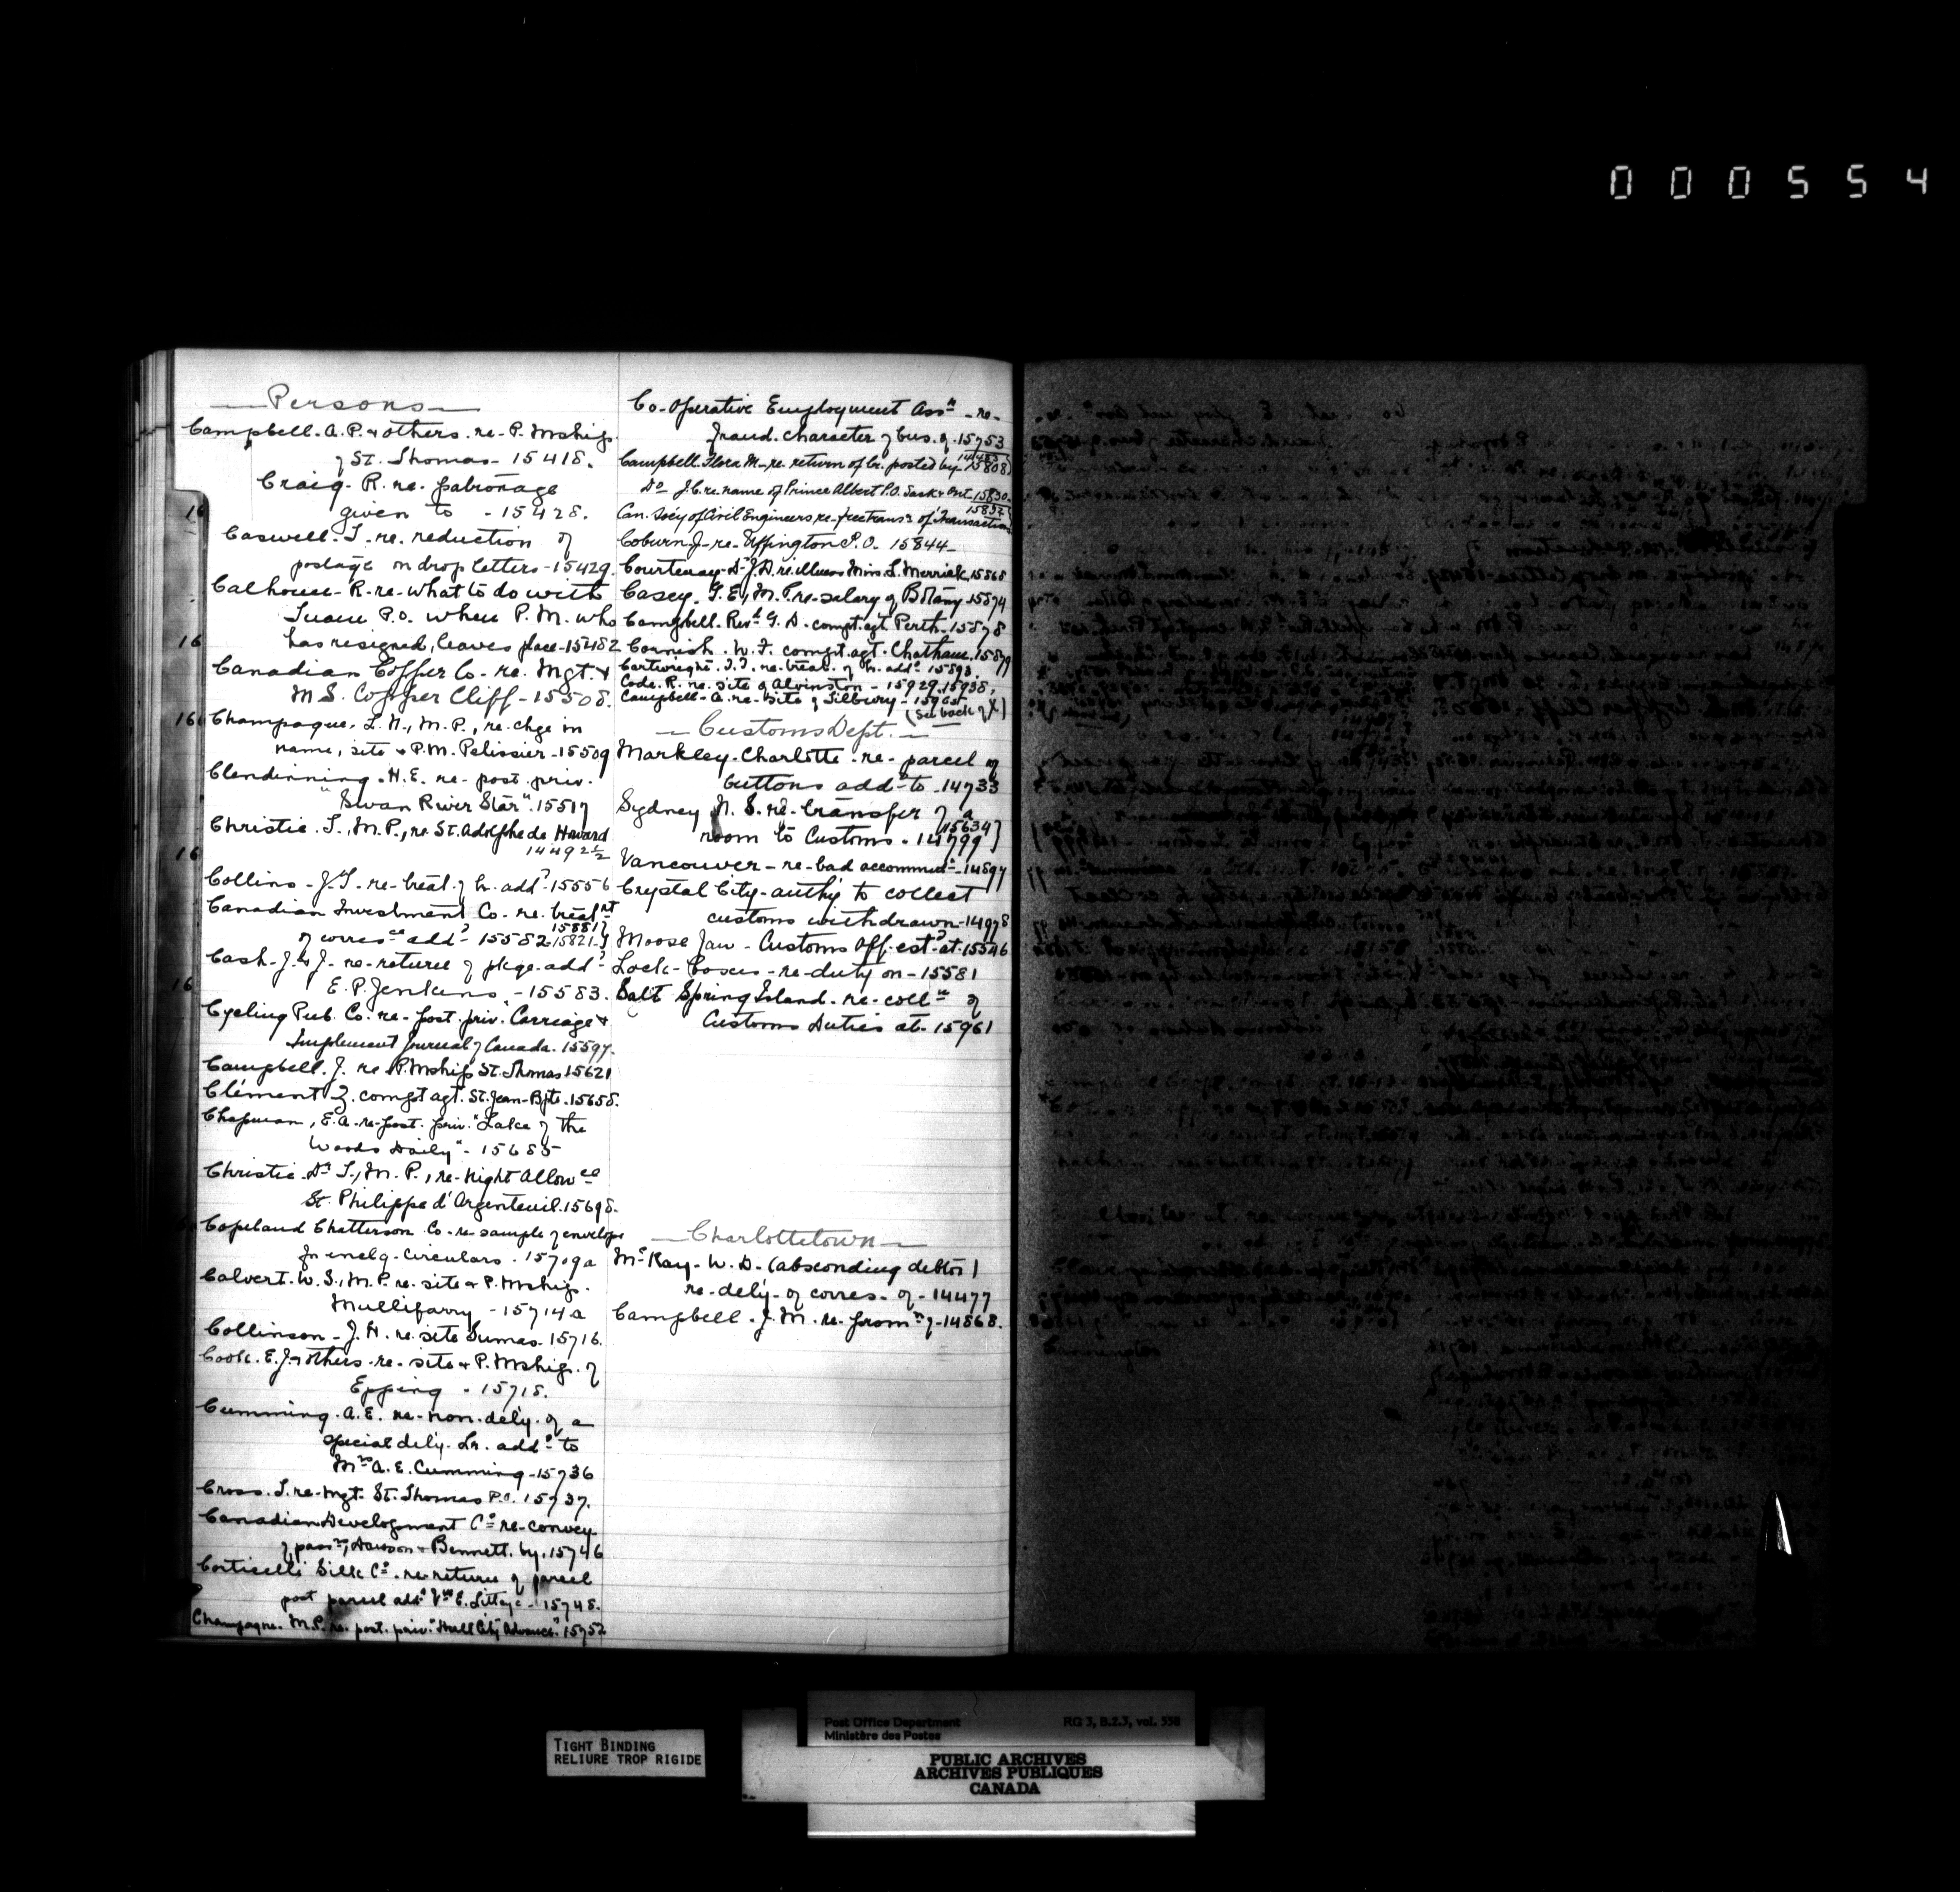 000554
Persons
Campbell. A. P. & others. re. P. Mship.
of St. Thomas - 15418.
Craig. R. re. patronage
given to - 15428.
Caswell. T. re. reduction of
postage on drop letters - 15429.
Calhoun - R. re - what to do with
P.O. when P. M. who
has resigned, leaves place - 15482
Canadian Copper Co. re. Mgt. &
M S. Copper Cliff - 15508.
Champagne, L. N., M. P., re. chge in
name, site & P.M. Pelissier - 15509
Clendinning. H. E. re. post. priv.
"Swan River Star". 15517
Christie. T., M. P., re. St. Adolphe de Howard
14492½
Collins - J. T. re - treat. of lr. addd. 15556
Canadian Investment Co. re. treatmt
15581
of corresce addd - 15582 15821
Cash. J. & J. re - return of pkge. addd
E. P. Jenkins - 15583.
Cycling Pub. Co. re - post. priv. Carriage &
Implement Journal of Canada. 15597.
Campbell. J. re P. Mship St. Thomas 15621
Clément Z. compt agt. St. Jean - Bpte. 15658.
Chapman, E. A. re - post. priv. "Lake of the
Woods Daily" - 15685
Christie. Dr T., M. P., re - Night Allowce
St. Philippe d'Argenteuil. 15698.
Copeland Chatterson Co. re sample of envelope
for enclg. circulars. 15709a
Calvert. W. S., M. P. re. site & P. Mship.
Mullifarry - 15714a
Collinson - J. H. re. site Sumas. 15716.
Cook. E. J. & others. re. site & P. Mship. of
Epping - 15718.
Cumming. A. E. re - non - dely. of a
special dely. Lr. addd to
Mrs A. E. Cumming - 15736
Cross. T. re - Mgt. St. Thomas P.O. 15737.
Canadian Development Co re - convey.
of Dawson & Bennett, by, 15746
Corticelli Silk Co. re return of parcel
post parcel addd E. 15748.
Champagne. M. P. re. post. priv. "Hull City Advance" 15752
Co-Operative Employment Assn - re -
fraud. character of bus. of. 15753
14483
Campbell. Flora M - re. return of lr. posted by - 15808
Do J. C. re name of Prince Albert P.O. Sask & Ont. 15830.
15832
Can. Socy of Civil Engineers re - free transn of Transactions
Coburn. J - re - Uffington P. O. 15844 -
Courtenay - Dr J. D. re. illness Miss S. Merrick. 15868
Casey. G. E., M. P. re - salary of 15874
Campbell. Revd G. D - compt. agt. Perth. 15878
Cornish. W. F. compt. agt. Chatham. 15879
Cartwright. J. J. re. treat. of lr. addd 15893.
Code. R. re. site of Alvinston - 15929, 15938,
Campbell - A. re - site of Tilbury - 15965
(See back of X)
Customs Dept.
Markley. Charlotte. re - parcel of
buttons addd to. 14733
Sydney N. S. re - transfer of a
15634
room to Customs. 14799
Vancouver - re - bad accommdn - 14897
Crystal City - authy to collect
customs withdrawn - 14978
Moose Jaw - Customs Off. estd at. 15546
Lock - boxes - re - duty on - 15581
Salt Spring Island - re - colln of
Customs Duties at - 15961
Charlottetown
McKay - W. D. (absconding debtor)
re - dely - of corres. of - 14477
Campbell. J. M. re. promn of - 14868.
16
16
16
16
16
TIGHT BINDING
RELIURE TROP RIGIDE
Post Office Department RG 3, B.2.3, vol. 338
Ministère des Postes
PUBLIC ARCHIVES
ARCHIVES PUBLIQUES
CANADA